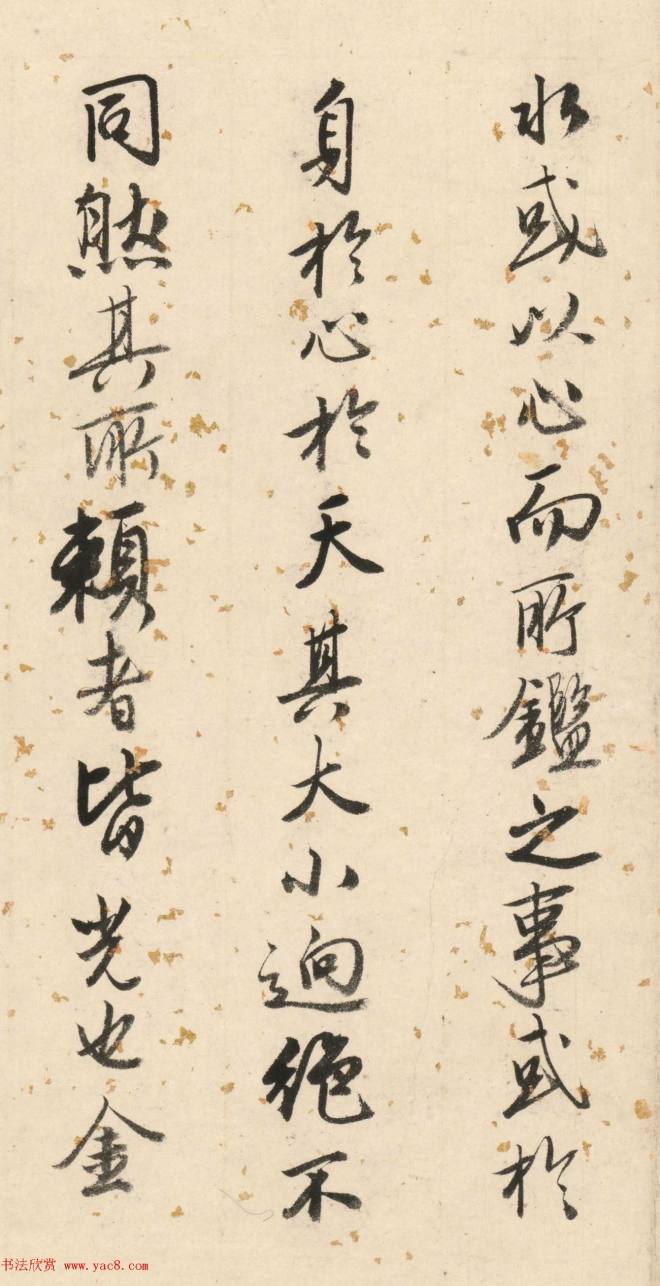 水或以心而所鑑之事或於
身於心於天其大小迥絶不
同然其所頼者皆光也金
书法欣赏 www.yac8.com